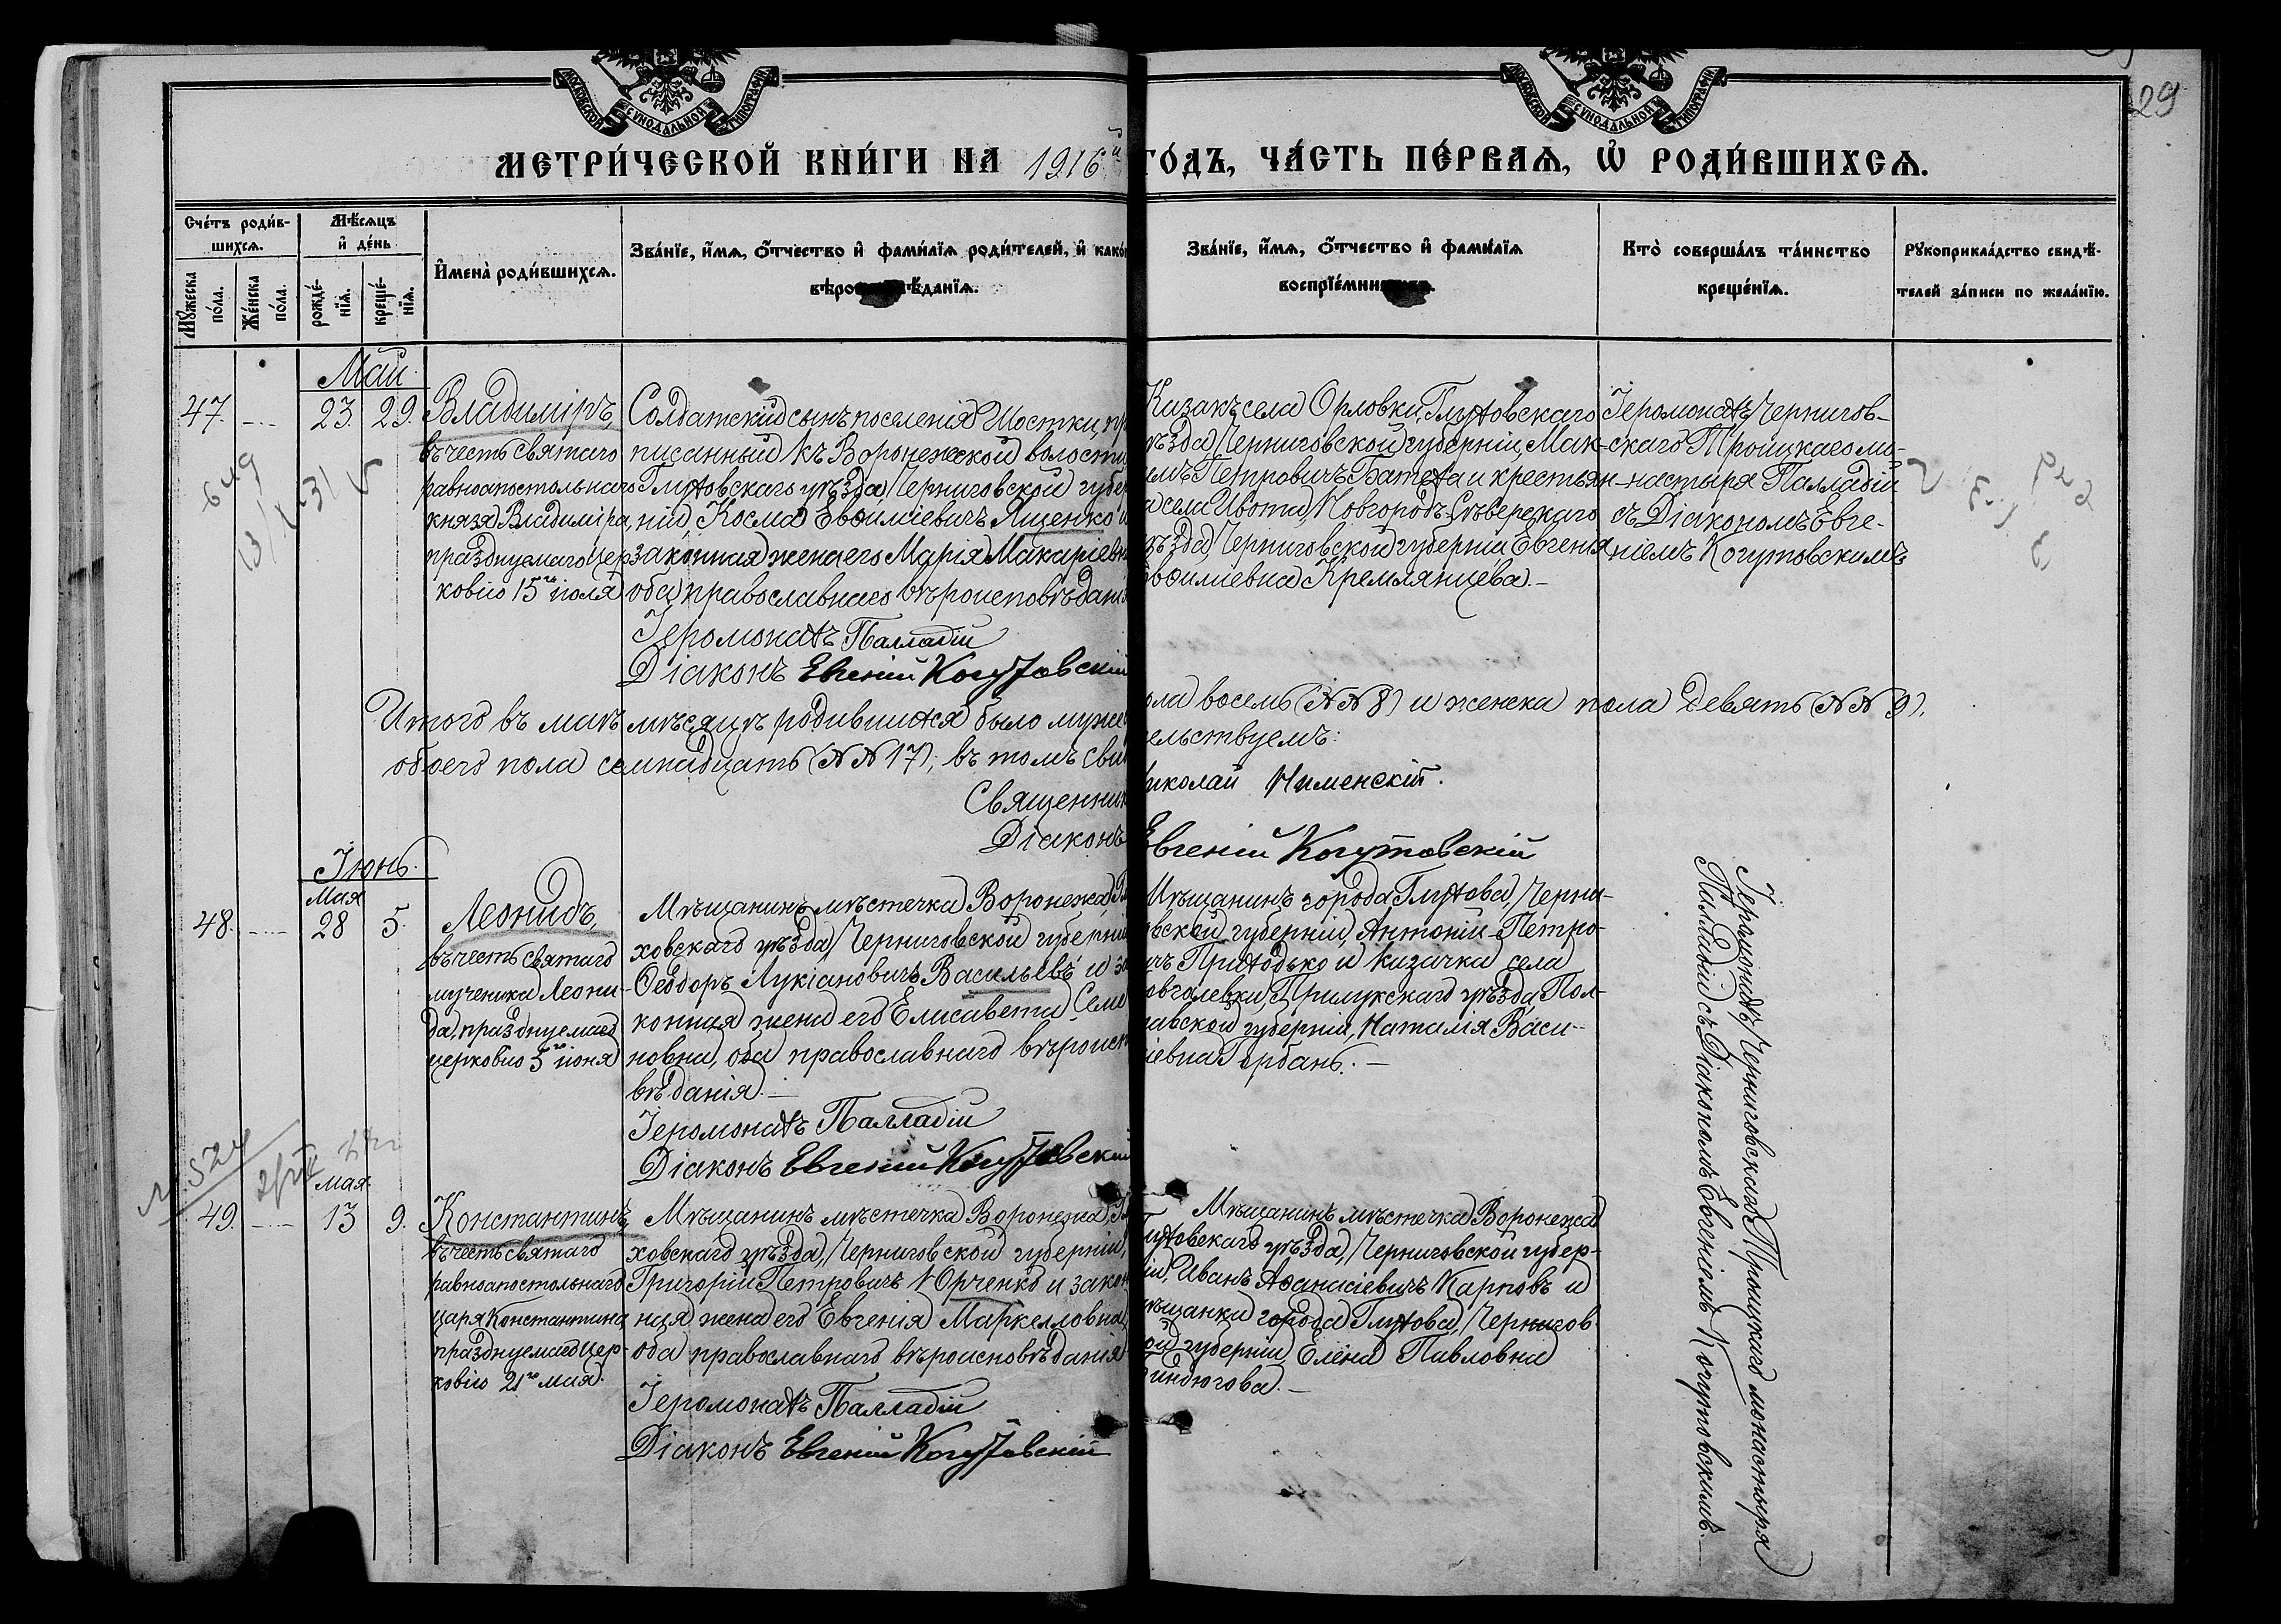 МОСКОВСКОЙ СѴНОДАЛЬНОЙ ТИПОГРАФІИ
МОСКОВСКОЙ СѴНОДАЛЬНОЙ ТИПОГРАФІИ
29
МЕТРИ́ЧЕСКОЙ КНИ́ГИ НА 1916й
ГО́ДЪ, ЧА́СТЬ ПЕ́РВАѦ, Ѿ РОДИ́ВШИХСѦ.
Сче́тъ роди́в-
шихсѧ.
Мѣ́сѧцъ
и҆ де́нь
Мꙋ́жеска
по́ла.
Же́нска
по́ла.
рожде́-
нїѧ.
креще́-
нїѧ.
И҆мена̀ роди́вшихсѧ.
Зва́нїе, и҆́мѧ, ѻ҆́тчество и҆ фами́лїѧ роди́телей, и҆ како́
вѣро ѣ́данїѧ.
Зва́нїе, и҆́мѧ, ѻ҆́тчество и҆ фами́лїѧ
воспрїе́мни
Кто̀ соверша́лъ та́инство
креще́нїѧ.
Рꙋкоприкла́дство свидѣ́-
телей за́писи по жела́нїю.
Май
47. 23. 29.
Владиміръ,
въ честь святаго
равноапостольнаго
князя Владиміра,
празднуемаго Цер-
ковію 15го іюля
Солдатскій сынъ поселенія Шостки, пр
писанный къ Воронежской волости
Глуховскаго уѣзда, Черниговской губер
ніи Косма Евѳиміевичъ Ященко и
законная жена его Марія Макаріевн
оба православнаго вѣроисповѣдані
Іеромонахъ Палладій
Діаконъ Евгеній Когутовскій
Казакъ села Орловки, Глуховскаго
уѣзда, Черниговской губерніи, Мак-
имъ Петровичъ Батеха и крестьян-
а села Ивота, Новгородъ Сѣверскаго
уѣзда, Черниговской губерніи Евгенія
Евѳиміевна Кремлянцева.—
Іеромонахъ Чернигов-
скаго Троицкаго мо-
настыря Палладій
съ Діакономъ Евге-
ніемъ Когутовскимъ
649
13/V-31
Итого въ маѣ мѣсяцѣ родившихся было муже
ола восемь (№№ 8) и женска пола девять (№№ 9),
обоего пола семнадцать (№№ 17); въ томъ сви
ельствуемъ:
Священник
иколай Именскій.
Діаконъ
Евгеній Когутовскій
Іюнь.
Мая
48. 28 5.
Леонидъ,
въ честь святаго
мученика Леони-
да, празднуемаго
церковію 5го іюня
Мѣщанинъ мѣстечка Воронежа, Гл
ховскаго уѣзда, Черниговской губерніи
Ѳеодоръ Лукіановичъ Васильевъ и за
конная жена его Елисавета Семе
новна, оба православнаго вѣроисп
вѣданія.—
Іеромонахъ Палладій
Діаконъ Евгеній Когутовскій
Мѣщанинъ города Глухова, Черни-
овской губерніи, Антоній Петро-
ичъ Приходько и казачка села
овгалевки, Прилукскаго уѣзда, Пол-
авской губерніи, Наталія Васи-
іевна Горбань.—
Іеромонахъ Черниговскаго Троицкаго монастыря
Палладій съ Діакономъ Евгеніемъ Когутовскимъ.—
Мая
49. 13 9.
Константинъ,
въ честь святаго
равноапостольнаго
царя Константина
празднуемаго Цер-
ковію 21го мая.
Мѣщанинъ мѣстечка Воронежа, Гл
ховскаго уѣзда, Черниговской губерніи,
Григорій Петровичъ Юрченко и закон
ная жена его Евгенія Маркелловна,
оба православнаго вѣроисповѣданія
Іеромонахъ Палладій
Діаконъ Евгеній Когутовскій
Мѣщанинъ мѣстечка Воронежа
Глуховскаго уѣзда, Черниговской губер-
ніи, Иванъ Аѳанасіевичъ Карповъ и
мѣщанка города Глухова, Чернигов-
ой губерніи, Елена Павловна
индюгова.—